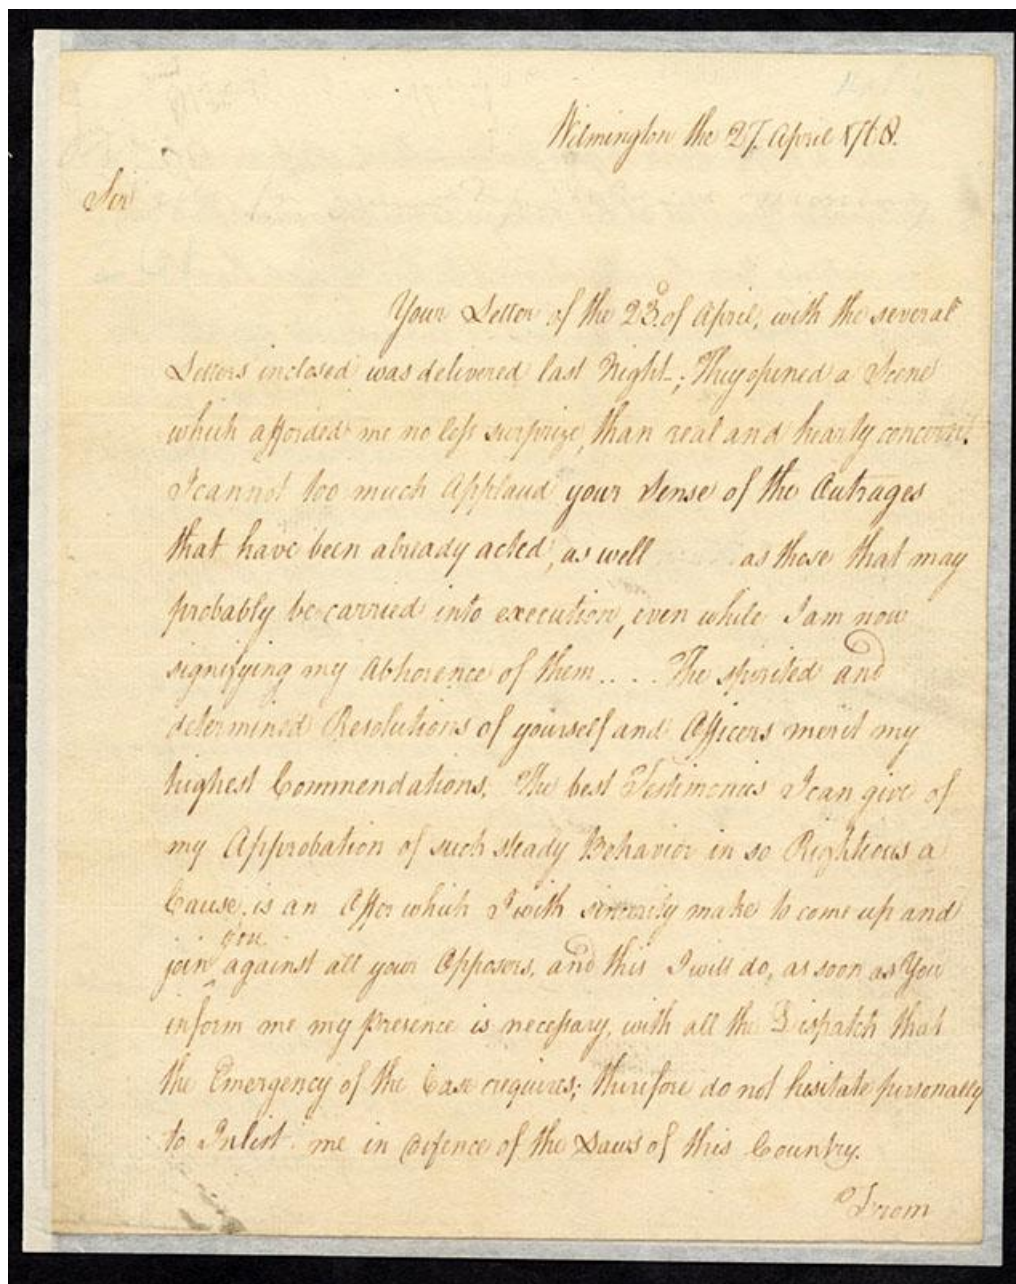 Wilmington the 27. April 1768.
Sir
Your Letter of the 23.d of April, with the several
Letters inclosed was delivered last Night; They opened a Scene
which afforded me no less surprize, than real and hearty concern.
I cannot too much Applaud your Sense of the Outrages
that have been already acted, as well as those that may
probably be carried into execution, even while I am now
signifying my Abhorence of them.... The spirited and
determined Resolutions of yourself and Officers merit my
highest Commendations. The best Testimonies I can give of
my Approbation of such steady Behavior in so Righteous a
Cause, is an Offer which I with sincerity make to come up and
join you against all your Opposers, and this I will do, as soon as You
inform me my presence is necessary, with all the Dispatch that
the Emergency of the Case requires; therefore do not hesitate personally
to Inlist me in Defence of the Laws of this Country.
From